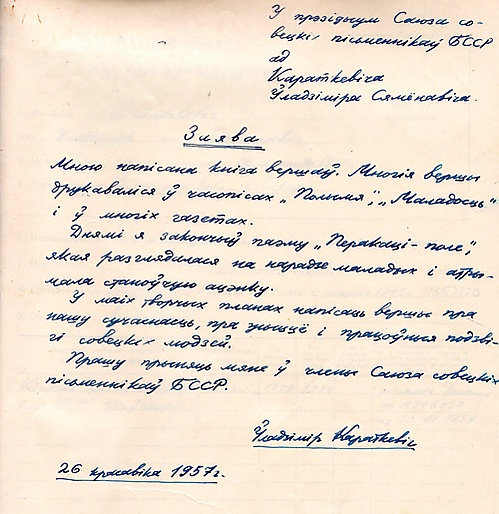 У прэзідыум Саюза со-
вецкіх пісьменнікаў БССР
ад
Караткевіча
Ўладзіміра Сямёнавіча.
Заява
Мною напісана кніга вершаў. Многія вершы
друкаваліся ў часопісах „Полымя", „Маладосць"
і ў многіх газетах.
Днямі я закончыў паэму „Перакаці-поле",
якая разглядалася на нарадзе маладых і атры-
мала станоўчую ацэнку.
У маіх творчых планах напісаць вершы пра
нашу сучаснасць, пра жыццё і працоўныя подзві-
гі совецкіх людзей.
Прашу прыняць мяне ў члены Саюза совецкіх
пісьменнікаў БССР.
Ўладзімір Караткевіч
26 красавіка 1957 г.